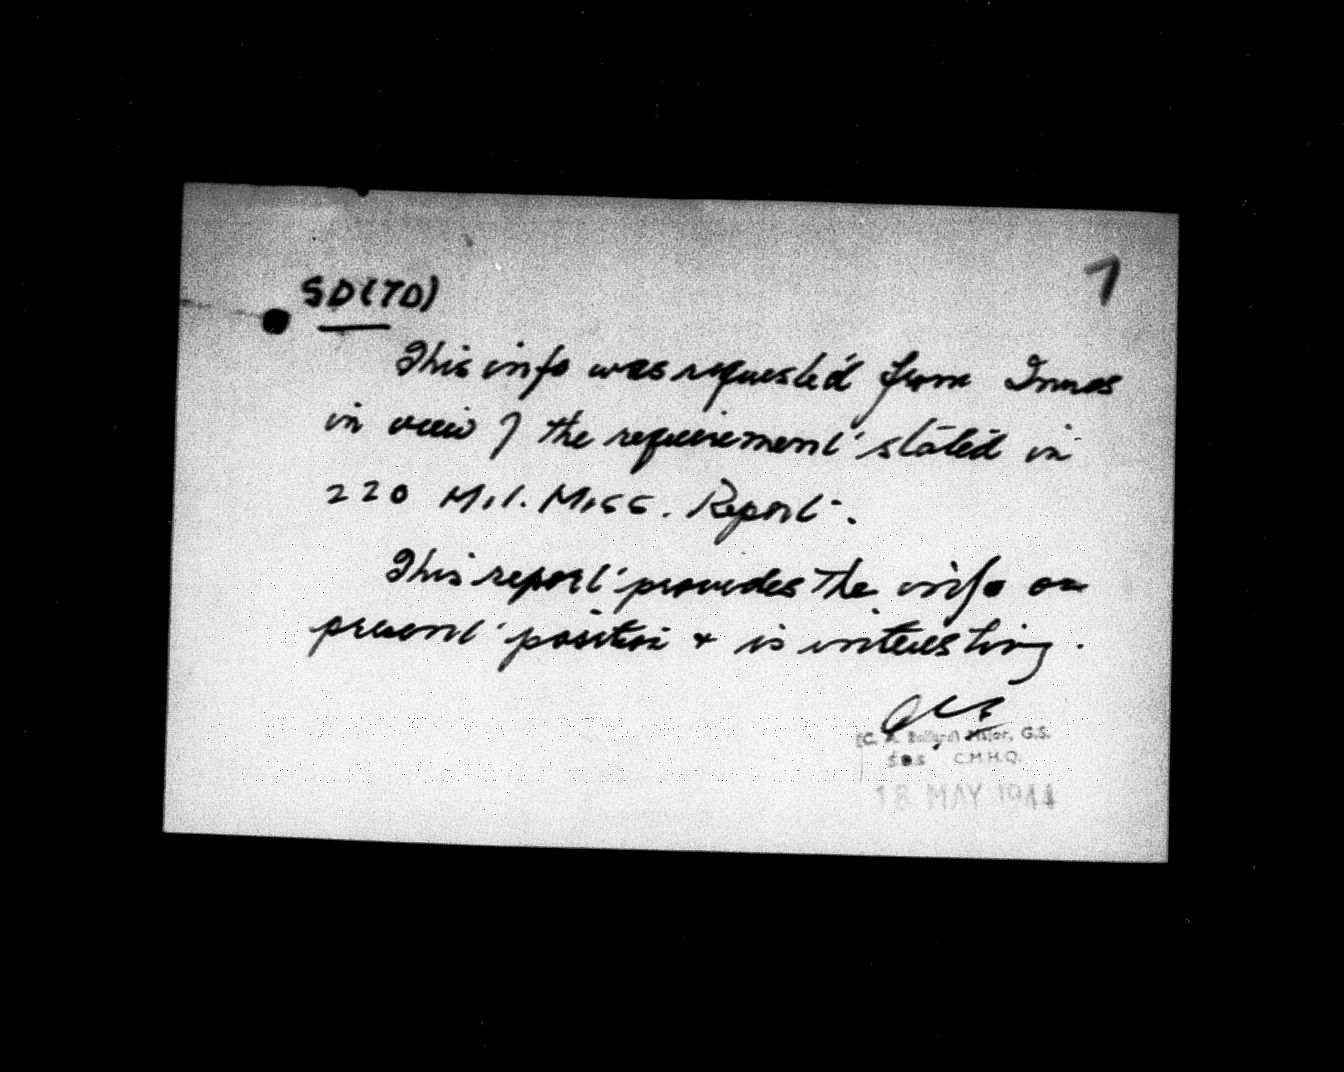 7
SD(TD)
This info was requested from Innes
in view of the requirement stated in
220 Mil. Miss. Report.
This report provides the info on
present position & is interesting.
(C. Ballard) Major, G.S.
C.M.H.Q.
18 MAY 1944